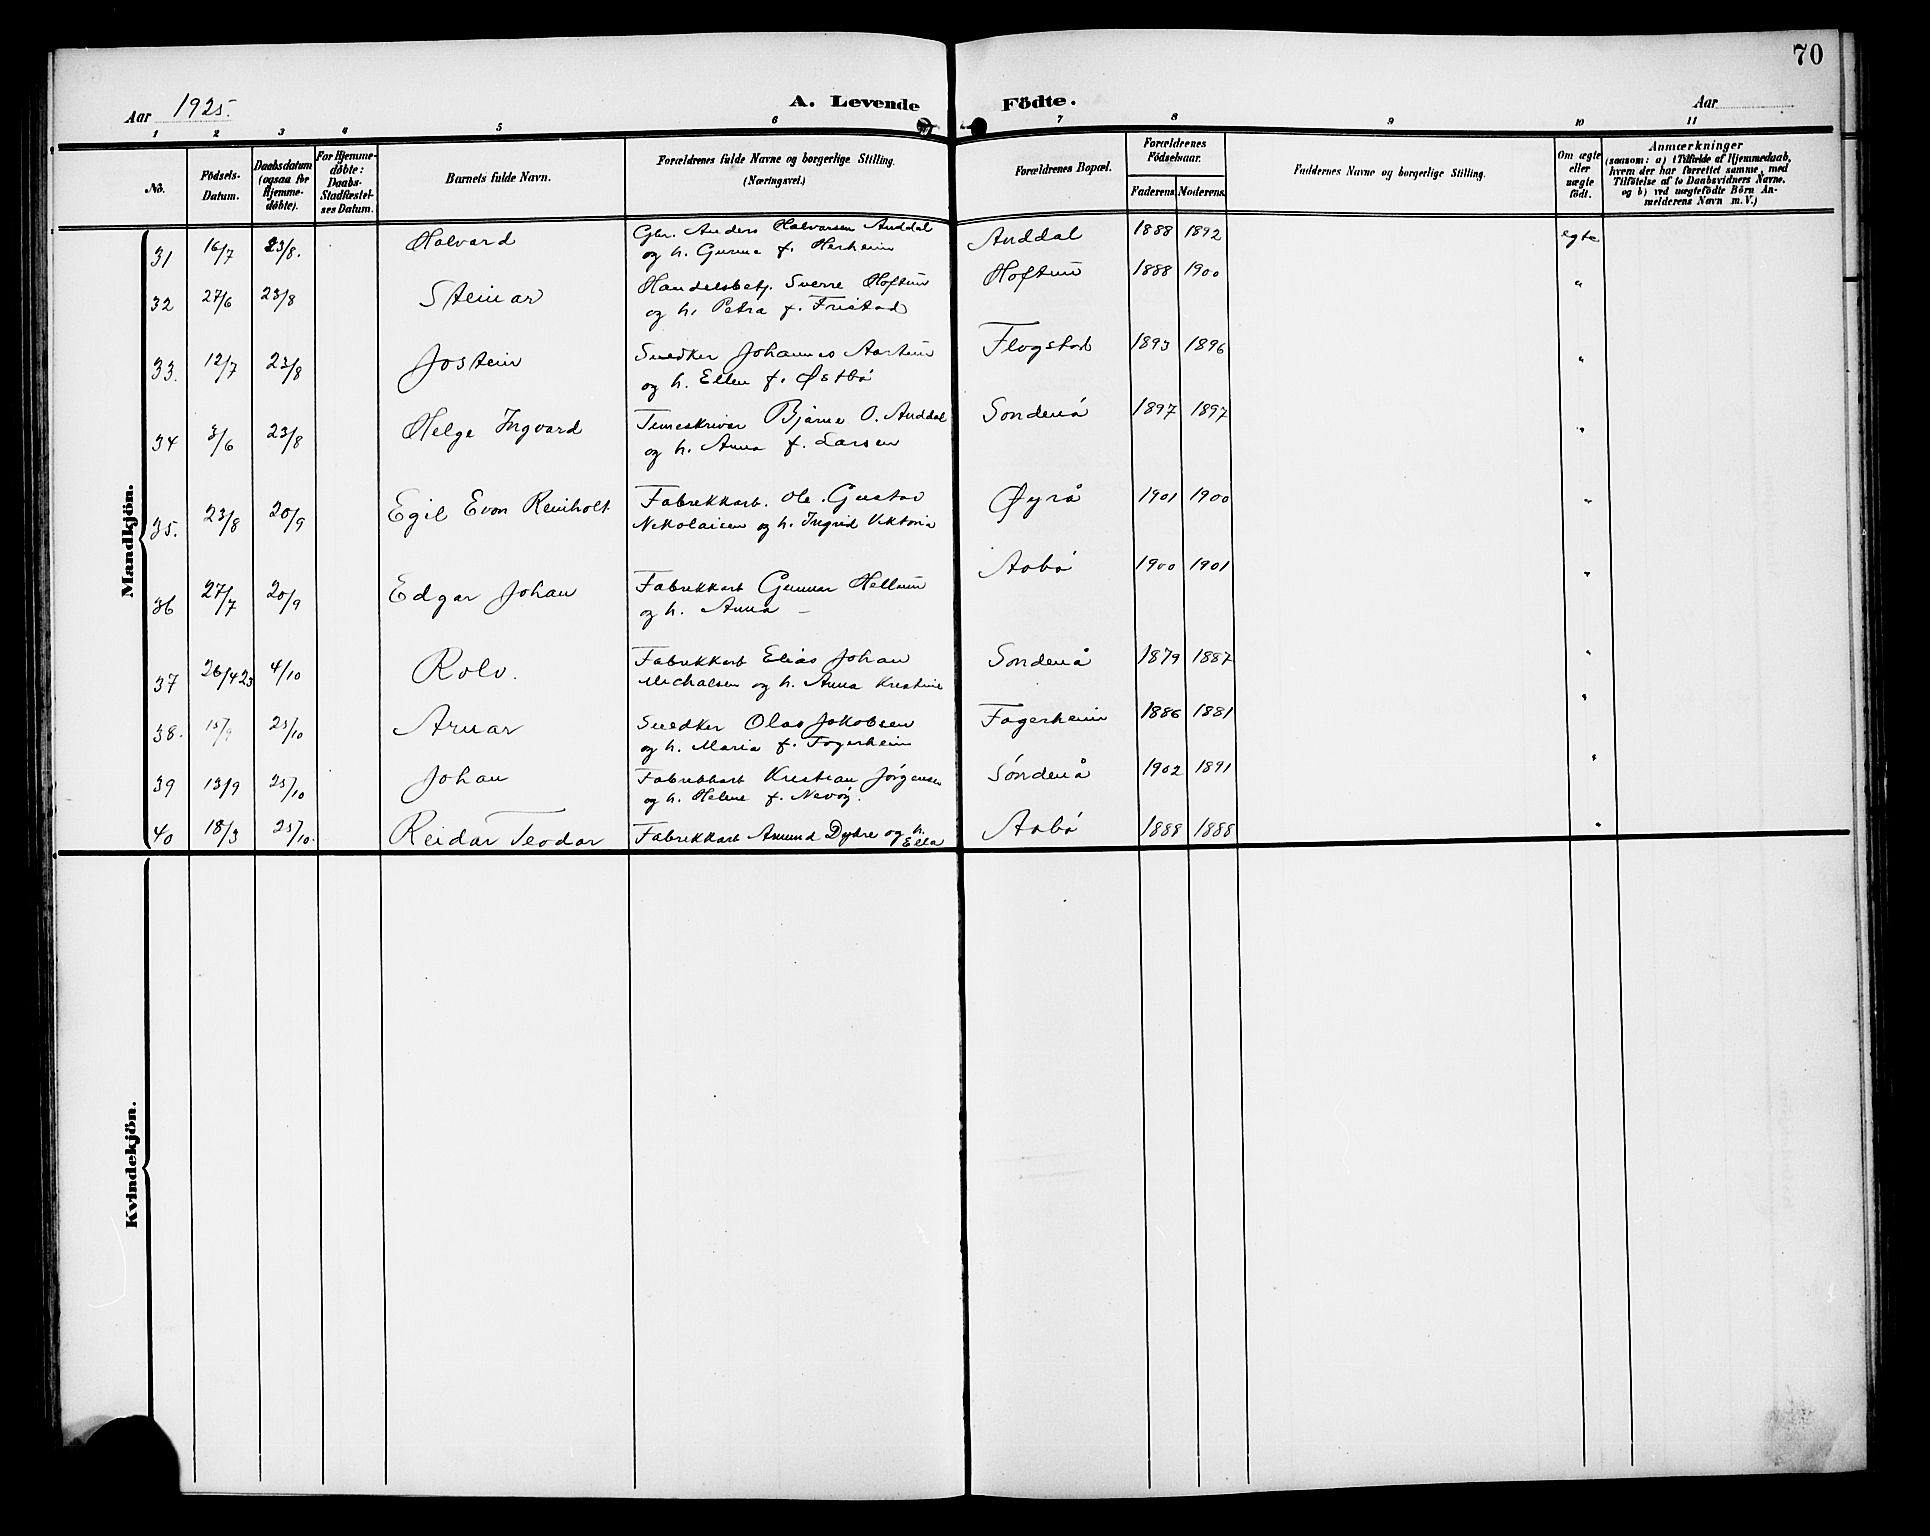 70
Aar 1925. A. Levende Födte. Aar
1 2 3 4 5 6 7 8 9 10 11
No. Födsels-Datum. Daabsdatum (ogsaa for Hjemme-döbte). For Hjemme-döbte: Daabs-Stadfæstel-ses Datum. Barnets fulde Navn. Forældrenes fulde Navne og borgerlige Stilling. (Næringsvei.) Forældrenes Bopæl. Forældrenes Födselsaar. Faderens Moderens. Faddernes Navne og borgerlige Stilling. Om ægte eller uægte födt. Anmærkninger (saasom: a) i Tilfælde af Hjemmedaab, hvem der har forrettet samme, med Tilföielse af to Daabsvidners Navne, og b) ved uægtefödte Börn An-melderens Navn m. V.)
Mandkjön.
31 16/7 23/8. Halvard Gbr. Anders Halvorsen Anddal Anddal 1888 1892 egte
og h. Gunna f. Herheim
32 27/6 23/8 Steinar Handelsbetj. Sverre Hoftun Hoftun 1888 1900 "
og h. Petra f. Fristad
33. 12/7 23/8 Jostein Snedker Johannes Aartun Flogstad 1893 1896 "
og h. Ellen f. Østbø
34 3/6 23/8 Helge Ingvard Timeskriver Bjarne O. Anddal Sondenå 1897 1897 "
og h. Anna f. Larsen
35. 23/8 20/9 Egil Evon Reinholt Fabrikkarb. Ole Gustav Øyrå 1901 1900 "
Nikolaisen og h. Ingrid Viktoria
36 27/7 20/9 Edgar Johan Fabrikkarb Gunnar Hellum Aabø 1900 1901 "
og h. Anna –
37 26/4 23 4/10 Rolv. Fabrikkarb Elias Johan Sondenå 1879 1887 "
Michalsen og h. Anna Kristine
38. 15/9 25/10 Arnar Snedker Olas Jakobsen Fagerheim 1886 1881 "
og h. Maria f. Fagerheim
39 13/9 25/10 Johan Fabrikkarb Kristian Jörgensen Söndenå 1902 1891 "
og h. Helene f. Nevøy.
40 18/3 25/10. Reidar Teodor Fabrikkarb Amund Dyhre og h. Ella Aabø 1888 1888 "
Kvindekjön.